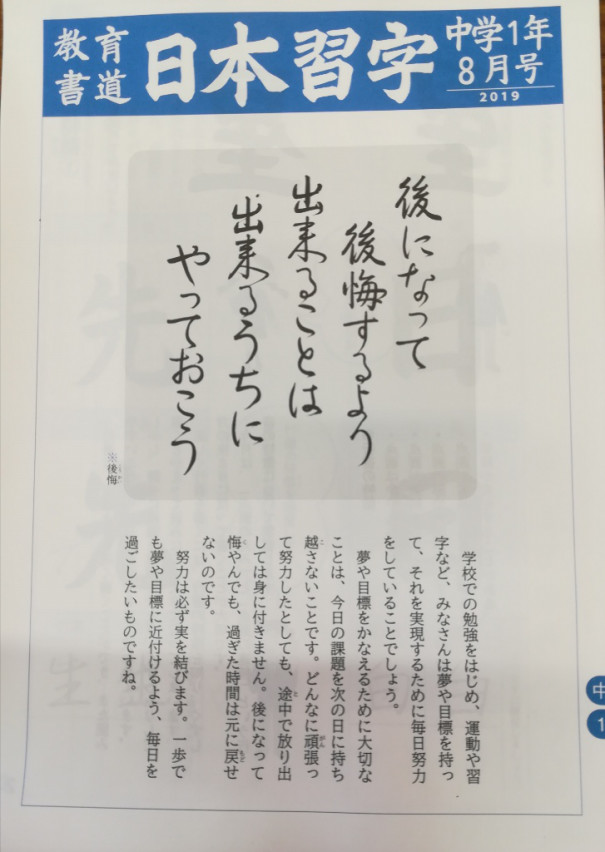 教育
書道
日本習字
中学1年
8月号
2019
後になって
後悔するより
出来ることは
出来るうちに
やっておこう
※後悔
学校での勉強をはじめ、運動や習
字など、みなさんは夢や目標を持っ
て、それを実現するために毎日努力
をしていることでしょう。
夢や目標をかなえるために大切な
ことは、今日の課題を次の日に持ち
越さないことです。どんなに頑張っ
て努力したとしても、途中で放り出
しては身に付きません。後になって
悔やんでも、過ぎた時間は元に戻せ
ないのです。
努力は必ず実を結びます。一歩で
も夢や目標に近付けるよう、毎日を
過ごしたいものですね。
中
1